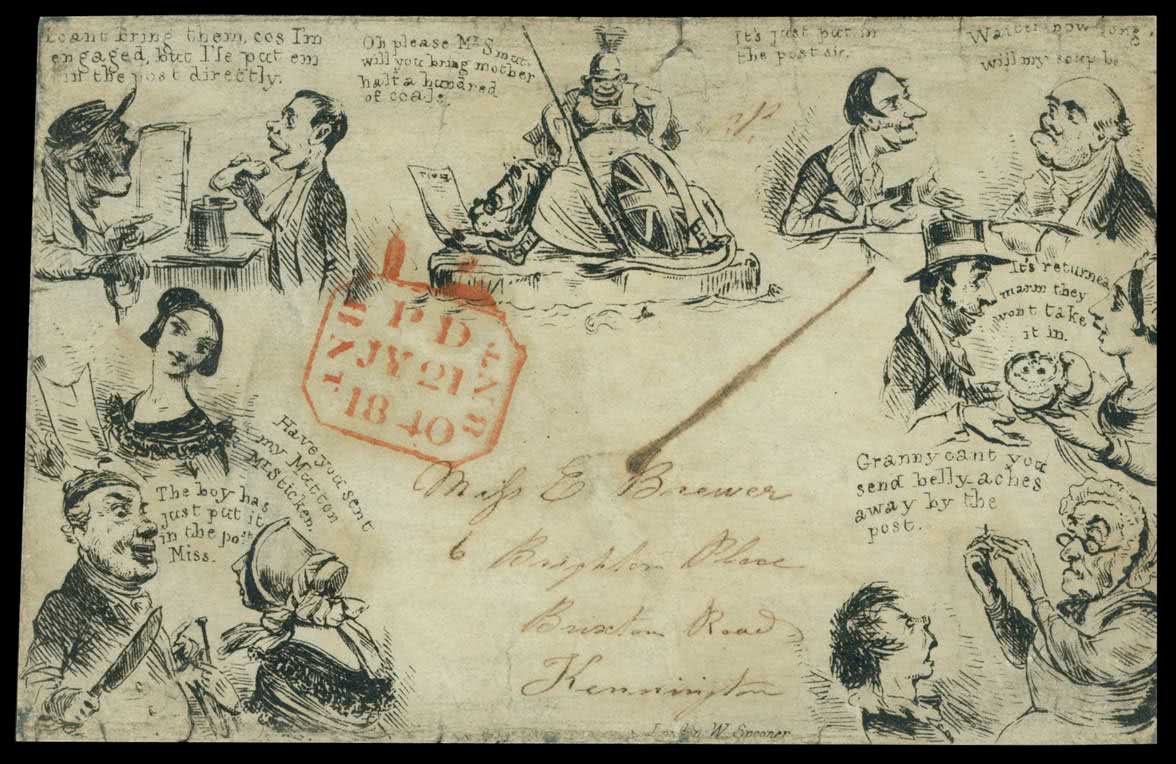 I cant bring them, cos I'm
engaged, But I'le put em
in the post directly.
Oh please Mr Smut,
will you bring mother
half a hundred
of coals.
It's just put in
the post sir.
Waiter now long
will my soup be
It's returned
marm they
wont take
it in.
PD
JY 21
1840
Have you sent
my Mutton
Mr Sticken.
The boy has
just put it
in the post
Miss.
Granny cant you
send belly-aches
away by the
post.
Miss E Brewer
6 Brighton Place
Brixton Road
Kennington
London W. Spooner